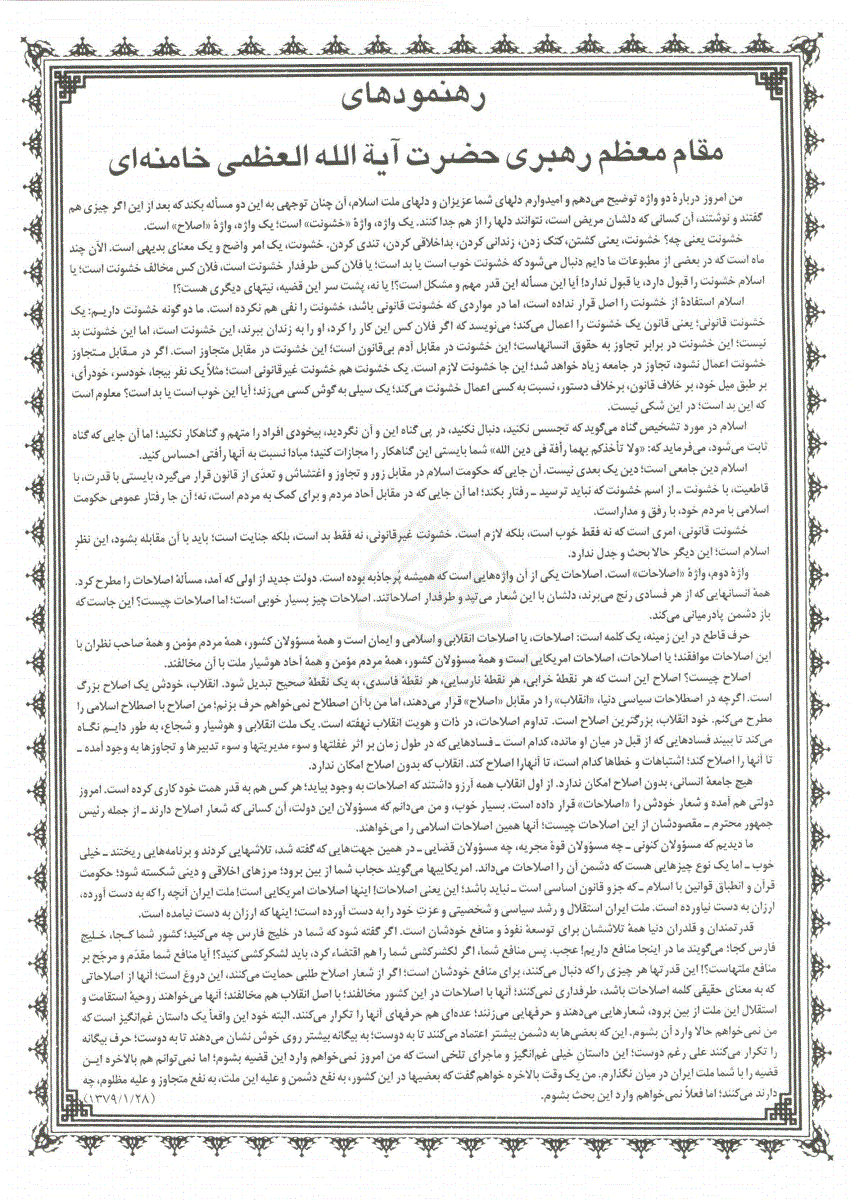 رهنمودهای
مقام معظم رهبری حضرت آیة الله العظمی خامنه‌ای
من امروز دربارهٔ دو واژه توضیح می‌دهم و امیدوارم دلهای شما عزیزان و دلهای ملت اسلام، آن چنان توجهی به این دو مسأله بکند که بعد از این اگر چیزی هم
گفتند و نوشتند، آن کسانی که دلشان مریض است، نتوانند دلها را از هم جدا کنند. یک واژه، واژهٔ «خشونت» است؛ یک واژه، واژهٔ «اصلاح» است.
خشونت یعنی چه؟ خشونت، یعنی کشتن، کتک زدن، زندانی کردن، بداخلاقی کردن، تندی کردن. خشونت، یک امر واضح و یک معنای بدیهی است. الآن چند
ماه است که در بعضی از مطبوعات ما دایم دنبال می‌شود که خشونت خوب است یا بد است؛ یا فلان کس طرفدار خشونت است، فلان کس مخالف خشونت است؛ یا
اسلام خشونت را قبول دارد، یا قبول ندارد! آیا این مسأله این قدر مهم و مشکل است؟! یا نه، پشت سر این قضیه، نیتهای دیگری هست؟!
اسلام استفادهٔ از خشونت را اصل قرار نداده است، اما در مواردی که خشونت قانونی باشد، خشونت را نفی هم نکرده است. ما دو گونه خشونت داریم: یک
خشونت قانونی؛ یعنی قانون یک خشونت را اعمال می‌کند؛ می‌نویسد که اگر فلان کس این کار را کرد، او را به زندان ببرند، این خشونت است، اما این خشونت بد
نیست؛ این خشونت در برابر تجاوز به حقوق انسانهاست؛ این خشونت در مقابل آدم بی‌قانون است؛ این خشونت در مقابل متجاوز است. اگر در مـقابل مـتجاوز
خشونت اعمال نشود، تجاوز در جامعه زیاد خواهد شد؛ این جا خشونت لازم است. یک خشونت هم خشونت غیرقانونی است؛ مثلاً یک نفر بیجا، خودسر، خودرأی،
بر طبق میل خود، بر خلاف قانون، برخلاف دستور، نسبت به کسی اعمال خشونت می‌کند؛ یک سیلی به گوش کسی می‌زند؛ آیا این خوب است یا بد است؟ معلوم است
که این بد است؛ در این شکی نیست.
اسلام در مورد تشخیص گناه می‌گوید که تجسس نکنید، دنبال نکنید، در پی گناه این و آن نگردید، بیخودی افراد را متهم و گناهکار نکنید؛ اما آن جایی که گناه
ثابت می‌شود، می‌فرماید که: «ولا تأخذکم بهما رأفة فی دین الله» شما بایستی این گناهکار را مجازات کنید؛ مبادا نسبت به آنها رأفتی احساس کنید.
اسلام دین جامعی است؛ دین یک بعدی نیست. آن جایی که حکومت اسلام در مقابل زور و تجاوز و اغتشاش و تعدّی از قانون قرار می‌گیرد، بایستی با قدرت، با
قاطعیت، با خشونت ـ از اسم خشونت که نباید ترسید ـ رفتار بکند؛ اما آن جایی که در مقابل آحاد مردم و برای کمک به مردم است، نه؛ آن جا رفتار عمومی حکومت
اسلامی با مردم خود، با رفق و مداراست.
خشونت قانونی، امری است که نه فقط خوب است، بلکه لازم است. خشونت غیرقانونی، نه فقط بد است، بلکه جنایت است؛ باید با آن مقابله بشود، این نظر
اسلام است؛ این دیگر حالا بحث و جدل ندارد.
واژهٔ دوم، واژهٔ «اصلاحات» است. اصلاحات یکی از آن واژه‌هایی است که همیشه پُرجاذبه بوده است. دولت جدید از اولی که آمد، مسألهٔ اصلاحات را مطرح کرد.
همهٔ انسانهایی که از هر فسادی رنج می‌برند، دلشان با این شعار می‌تپد و طرفدار اصلاحاتند. اصلاحات چیز بسیار خوبی است؛ اما اصلاحات چیست؟ این جاست که
باز دشمن پادرمیانی می‌کند.
حرف قاطع در این زمینه، یک کلمه است: اصلاحات، یا اصلاحات انقلابی و اسلامی و ایمان است و همهٔ مسؤولان کشور، همهٔ مردم مؤمن و همهٔ صاحب نظران با
این اصلاحات موافقند؛ یا اصلاحات، اصلاحات امریکایی است و همهٔ مسؤولان کشور، همهٔ مردم مؤمن و همهٔ آحاد هوشیار ملت با آن مخالفند.
اصلاح چیست؟ اصلاح این است که هر نقطهٔ خرابی، هر نقطهٔ نارسایی، هر نقطهٔ فاسدی، به یک نقطهٔ صحیح تبدیل شود. انقلاب، خودش یک اصلاح بزرگ
است. اگرچه در اصطلاحات سیاسی دنیا، «انقلاب» را در مقابل «اصلاح» قرار می‌دهند، اما من با آن اصطلاح نمی‌خواهم حرف بزنم؛ من اصلاح با اصطلاح اسلامی را
مطرح می‌کنم. خود انقلاب، بزرگترین اصلاح است. تداوم اصلاحات، در ذات و هویت انقلاب نهفته است. یک ملت انقلابی و هوشیار و شجاع، به طور دایـم نگـاه
می‌کند تا ببیند فسادهایی که از قبل در میان او مانده، کدام است ـ فسادهایی که در طول زمان بر اثر غفلتها و سوء مدیریتها و سوء تدبیرها و تجاوزها به وجود آمده ـ
تا آنها را اصلاح کند؛ اشتباهات و خطاها کدام است، تا آنهارا اصلاح کند. انقلاب که بدون اصلاح امکان ندارد.
هیچ جامعهٔ انسانی، بدون اصلاح امکان ندارد. از اول انقلاب همه آرزو داشتند که اصلاحات به وجود بیاید؛ هر کس هم به قدر همت خود کاری کرده است. امروز
دولتی هم آمده و شعار خودش را «اصلاحات» قرار داده است. بسیار خوب، و من می‌دانم که مسؤولان این دولت، آن کسانی که شعار اصلاح دارند ـ از جمله رئیس
جمهور محترم ـ مقصودشان از این اصلاحات چیست؛ آنها همین اصلاحات اسلامی را می‌خواهند.
ما دیدیم که مسؤولان کنونی ـ چه مسؤولان قوهٔ مجریه، چه مسؤولان قضایی ـ در همین جهت‌هایی که گفته شد، تلاشهایی کردند و برنامه‌هایی ریختند ـ خیلی
خوب ـ اما یک نوع چیزهایی هست که دشمن آن را اصلاحات می‌داند. امریکاییها می‌گویند حجاب شما از بین برود؛ مرزهای اخلاقی و دینی شکسته شود؛ حکومت
قرآن و انطباق قوانین با اسلام ـ که جزو قانون اساسی است ـ نباید باشد؛ این یعنی اصلاحات! اینها اصلاحات امریکایی است! ملت ایران آنچه را که به دست آورده،
ارزان به دست نیاورده است. ملت ایران استقلال و رشد سیاسی و شخصیتی و عزتِ خود را به دست آورده است؛ اینها که ارزان به دست نیامده است.
قدرتمندان و قلدران دنیا همهٔ تلاششان برای توسعهٔ نفوذ و منافع خودشان است. اگر گفته شود که شما در خلیج فارس چه می‌کنید؛ کشور شما کـجا، خـلیج
فارس کجا؛ می‌گویند ما در اینجا منافع داریم! عجب. پس منافع شما، اگر لکشرکشی شما را هم اقتضاء کرد، باید لشکرکشی کنید؟! آیا منافع شما مقدّم و مرجّح بر
منافع ملتهاست؟! این قدرتها هر چیزی را که دنبال می‌کنند، برای منافع خودشان است؛ اگر از شعار اصلاح طلبی حمایت می‌کنند، این دروغ است؛ آنها از اصلاحاتی
که به معنای حقیقی کلمه اصلاحات باشد، طرفداری نمی‌کنند؛ آنها با اصلاحات در این کشور مخالفند؛ با اصل انقلاب هم مخالفند؛ آنها می‌خواهند روحیهٔ استقامت و
استقلال این ملت از بین برود، شعارهایی می‌دهند و حرفهایی می‌زنند؛ عده‌ای هم حرفهای آنها را تکرار می‌کنند. البته خود این واقعاً یک داستان غم‌انگیز است که
من نمی‌خواهم حالا وارد آن بشوم. این که بعضی‌ها به دشمن بیشتر اعتماد می‌کنند تا به دوست؛ به بیگانه بیشتر روی خوش نشان می‌دهند تا به دوست؛ حرف بیگانه
را تکرار می‌کنند علی رغم دوست؛ این داستانِ خیلی غم‌انگیز و ماجرای تلخی است که من امروز نمی‌خواهم وارد این قضیه بشوم؛ اما نمی‌توانم هم بالاخره ایـن
قضیه را با شما ملت ایران در میان نگذارم. من یک وقت بالاخره خواهم گفت که بعضیها در این کشور، به نفع دشمن و علیه این ملت، به نفع متجاوز و علیه مظلوم، چه
دارند می‌کنند؛ اما فعلاً نمی‌خواهم وارد این بحث بشوم. (۱۳۷۹/۱/۲۸)